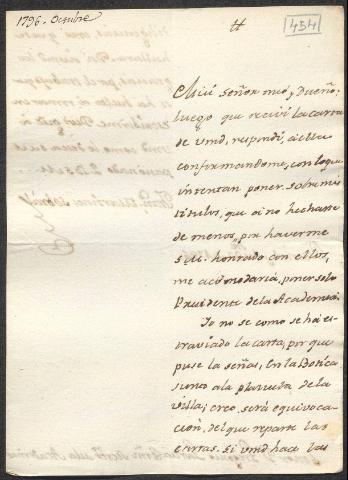 1796. Octubre
454
Mui señor mio, y Dueño:
luego que recivi la carta
de vmd, respondi, a ella
confirmandome, con lo que
intentan poner. sobre mis
titulos, que si no hechase
de menos, por haverme
S.M. honrrado con ellos,
me acomodaria, poner solo
Presidente de la Academia.
Io no se como se ha es-
traviado la carta, por que
puse la señas, En la Botica
junto a la plazuela de la
villa; creo será equivoca-
cion, del que reparte las
cartas. si vmd hace las